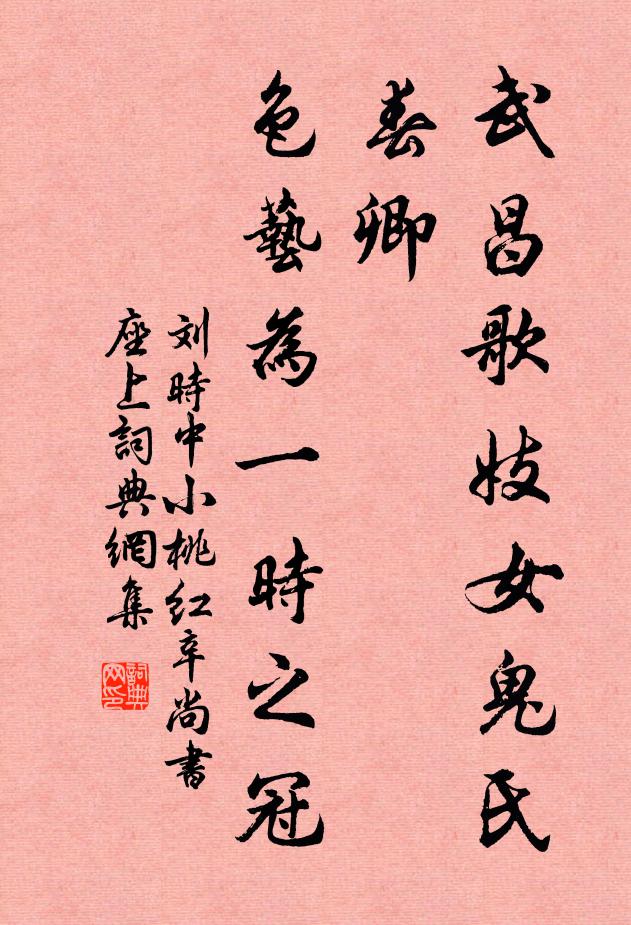 武昌歌妓女鬼氏
春卿
色藝為一時之冠
刘時中小桃红辛尚書
座上詞典網集
詞典网印